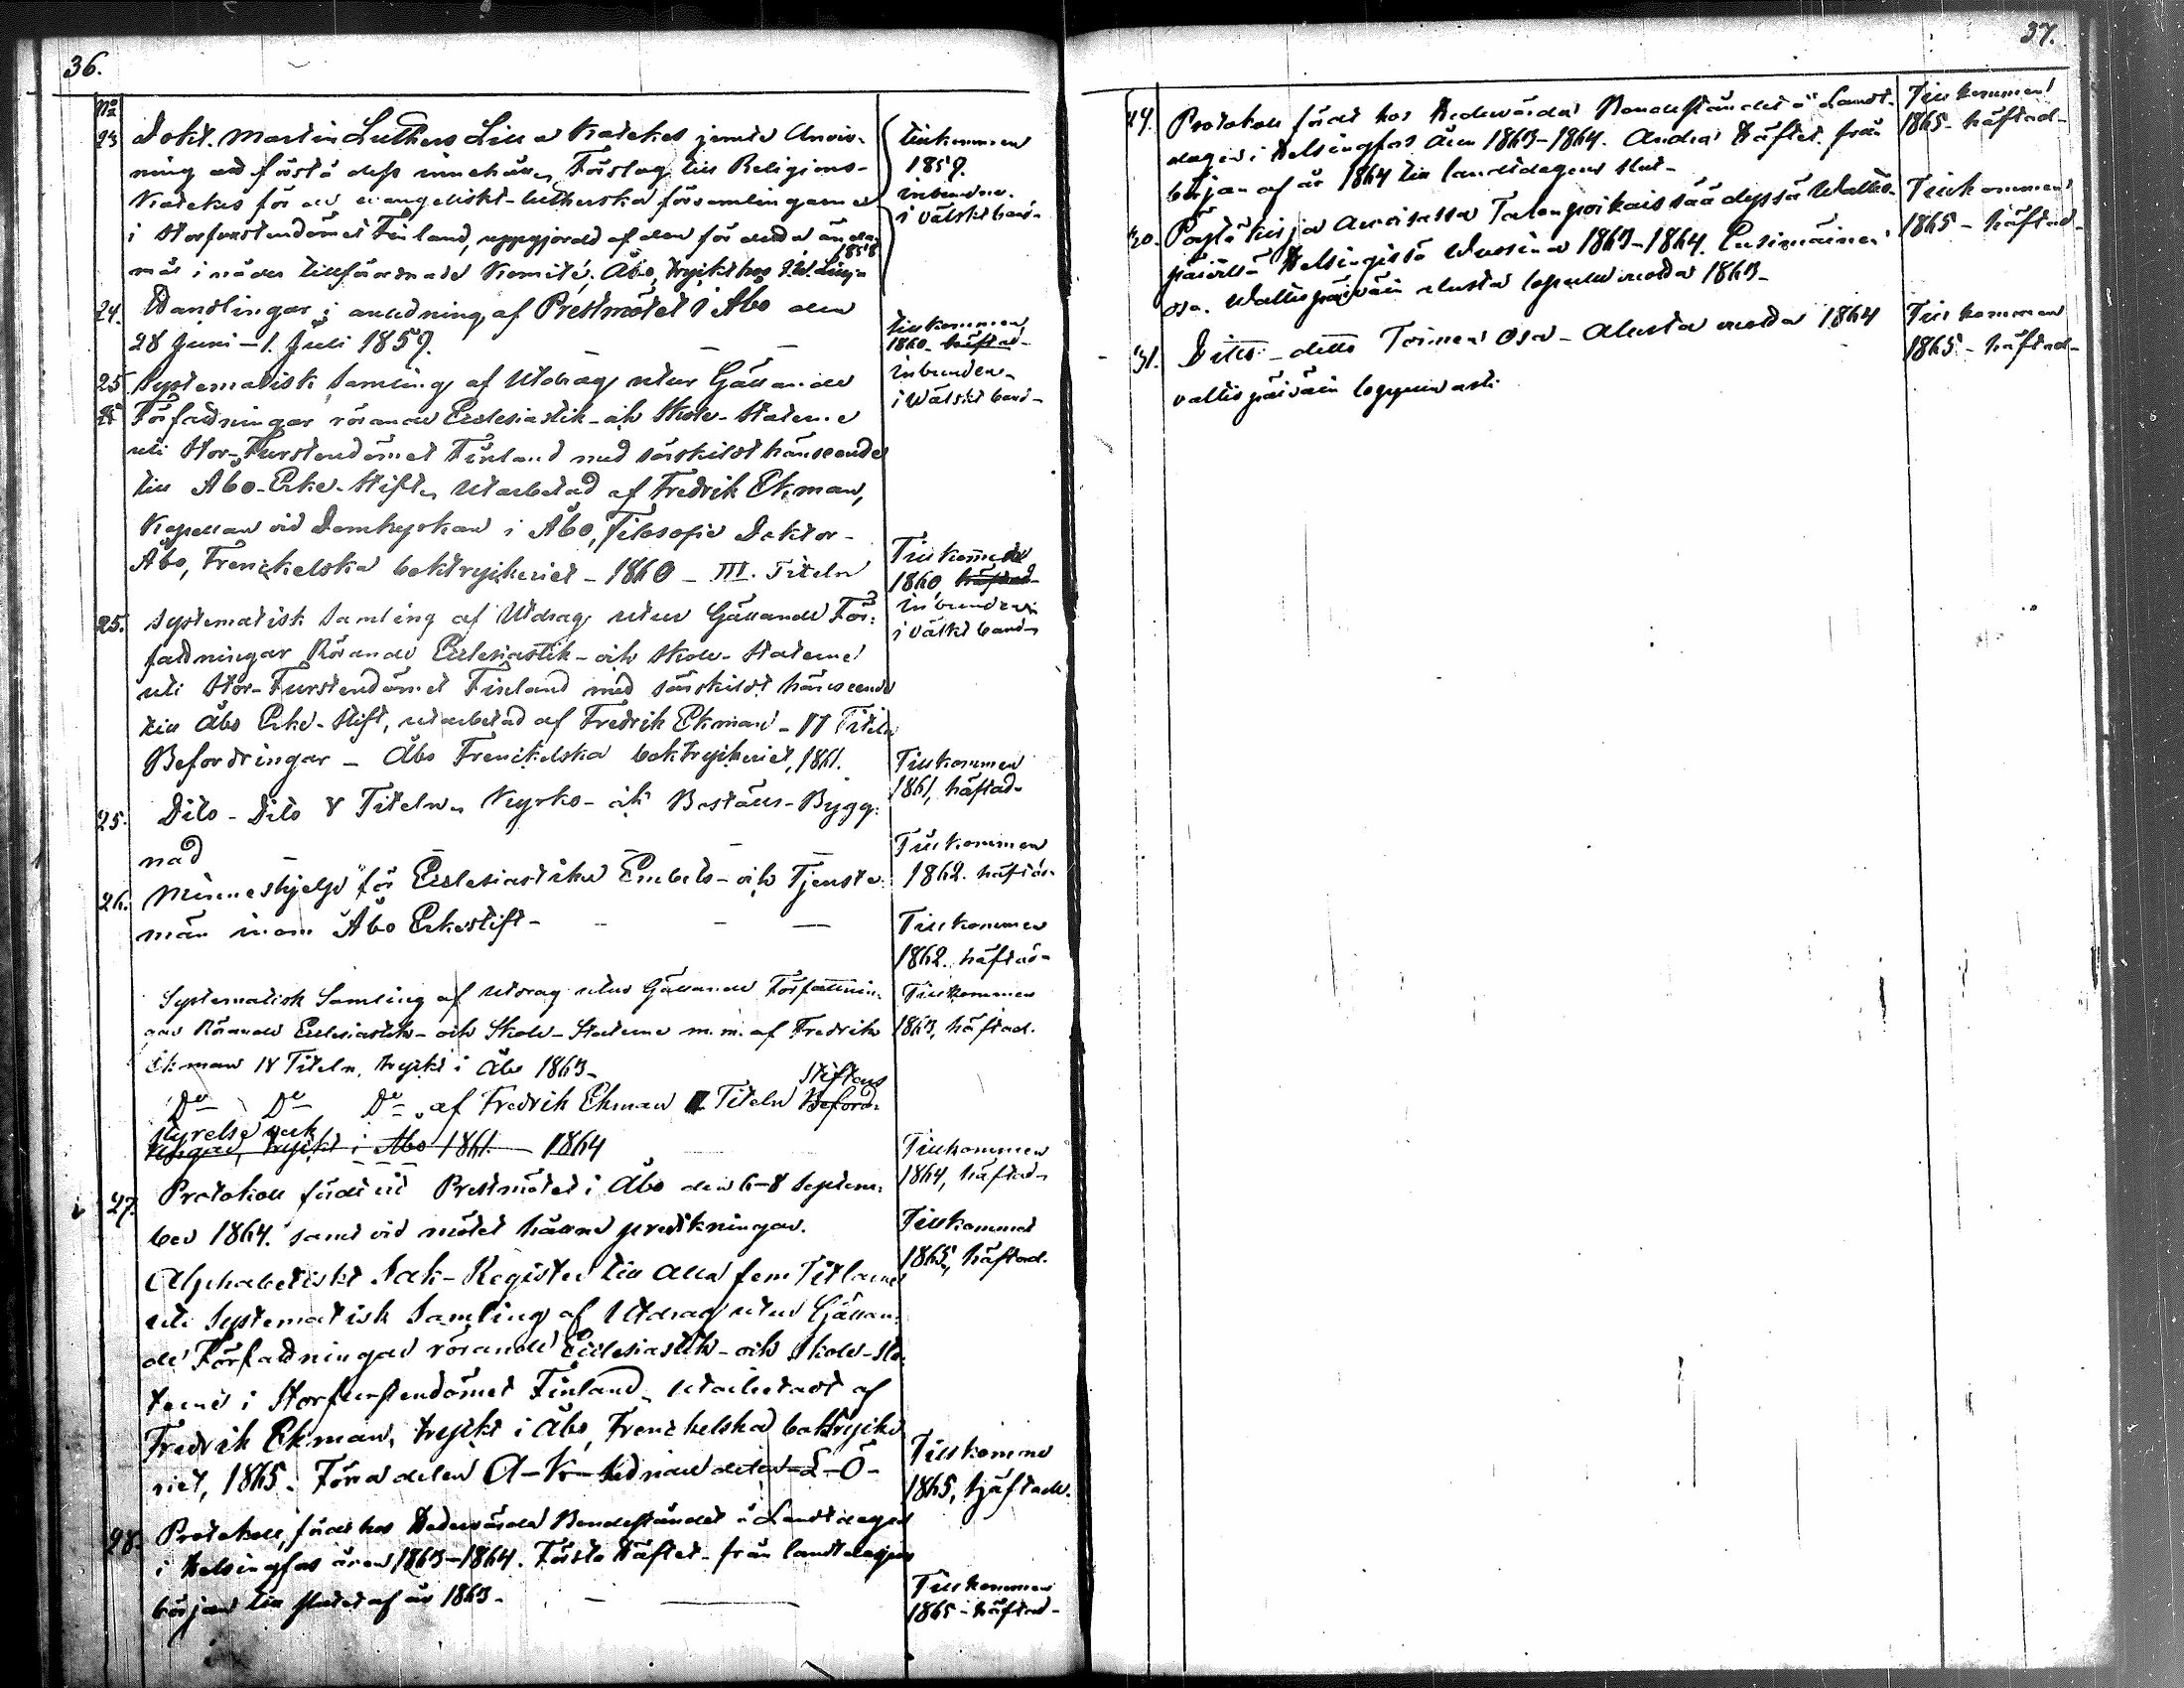 36.
No
23 Dokt. Martin Luthers Lilla Katekes jemte Anvis-
ning att förstå dess innehåll, Förslag till Religions-
Katekes för de evangeliskt-lutherska församlingarne
i Storfurstendömet Finland, uppgjordt af den för detta ända-
mål i nåder tillförordnade Komité. Åbo, tryckt hos J.W. Lillja 1858
tillkommen
1859.
inbunden
i välskt band-
24. Handlingar i anledning af Prestmötet i Åbo den
28 Juni-1. Juli 1859. - - -
tillkommen
1860- häftad-
inbunden-
i Wälskt band-
25 Systematisk Samling af Utdrag utur Gällande
25 Författningar rörande Ecclesiastik- och Skole-Staterne
uti Stor-Furstendömet Finland med särskildt hänseende
till Åbo-Erke-Stift, utarbetad af Fredrik Ekman,
Kapellan vid Domkyrkan i Åbo, Filosofie Doktor-
Åbo, Frenckelska boktryckeriet-1860-III. Titeln
Tillkommen
1860, häftad-
inbunden
i välskt band-
25. Systematisk Samling af Utdrag utur Gällande För-
fattningar Rörande Ecclesiastik- och Skole-Staterne
uti Stor-Furstendömet Finland med särskildt hänseende
till Åbo Erke-Stift, utarbetad af Fredrik Ekman-II Titeln
Befordringar- Åbo Frenckelska boktryckeriet, 1861.
Tillkommen
1861, häftad-
25. Dito-Dito V Titeln, Kyrko- och Boställs-Bygg-
nad - - - -
Tillkommen
1862. häftad-
26. Minneshjelp för Ecclesiastike Embets- och Tjenste-
män inom Åbo Erkestift- - - -
Tillkommen
1862. häftad-
Systematisk Samling af Utdrag utur Gällande Författnin-
gar Rörande Ecclesiastik- och Skole-Staterne m.m. af Fredrik
Ekman IV Titeln, tryckt i Åbo 1863-
Tillkommen
1863, häftad.
Do Do Do af Fredrik Ekman I Titeln Beford- Stiftens
styrelse verk
ringar, tryckt i Åbo 1861. 1864
Tillkommen
1864, häftad-
27. Protokoll fördt vid Prestmötet i Åbo den 6-8 Septem-
ber 1864. samt vid mötet hållne predikningar.
Tillkommet
1865, häftad.
Alphabetiskt Sak-Register till alla fem Titlarne
uti Systematisk Samling af Utdrag utur Gällan-
de Författningar rörande Ecclesiastik- och Skole-Sta-
terne i Storfurstendömet Finland, Utarbetadt af
Fredrik Ekman, tryckt i Åbo, Frenckelska boktrycke-
riet, 1865. Förra delen A-K-Sednare delen-L-Ö-
Tillkomne
1865, häftade.
28. Protokoll, fördt hos Hedervärda Bondeståndet å Landtdagen
i Helsingfors åren 1863-1864. Första Häftet- från landtdagens
början till slutet af år 1863- - -
Tillkommen
1865-häftad-
37.
29. Protokoll fördt hos Hedervärda Bondeståndet å Landt-
dagen i Helsingfors åren 1863-1864. Andra Häftet. från
början af år 1864 till landtdagens slut-
Tillkommen
1865- häftad-
30. Pöytäkirja Arvoisassa Talonpoikaissäädyssä Waltio-
päivillä Helsingissä Wuosina 1863-1864. Ensimäinen
osa. Waltiopäiväin alusta loppuun vuotta 1863-
Tillkommen
1865-häftad-
31. Ditto-ditto Toinen Osa-Alusta vuotta 1864
valtiopäiväin loppuun asti
Tillkommen
1865-häftad-